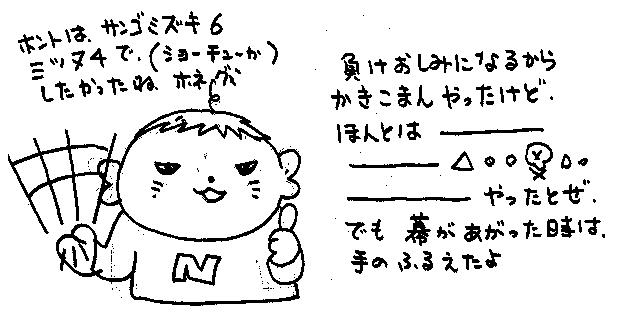 ホントは、サンゴミズキ6
ミツマタ4で、(ショーチューか)
したかったね ホネグミ
N
負けおしみになるから
かきこまんやったけど、
ほんとは ――――
――――△○○ △○
―――― やったとぜ.
でも 幕があがった時は、
手のふるえたよ